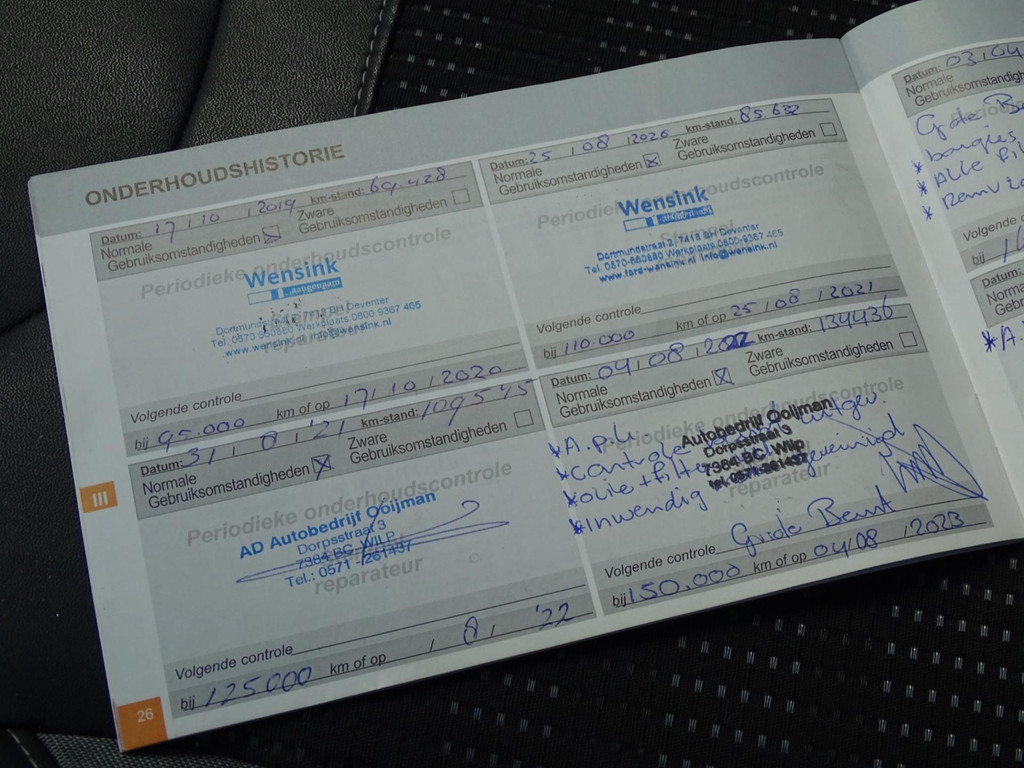 ONDERHOUDSHISTORIE
Datum: 17 / 10 / 2019 km-stand: 69.428
Normale Gebruiksomstandigheden
Zware Gebruiksomstandigheden
Periodieke onderhoudscontrole
Wensink
Aangenaam
Deventer
Tel. 0570 660660 Werkplaats 0800 9367 465
www.wensink.nl info@wensink.nl
Volgende controle
bij 95.000 km of op 17 / 10 / 2020
Datum: 25 / 08 / 2020 km-stand: 85.632
Normale Gebruiksomstandigheden
Zware Gebruiksomstandigheden
Periodieke onderhoudscontrole
Wensink
Aangenaam
Dortmundstraat 2, 7418 BH Deventer
Tel. 0570-660660 Werkplaats 0800-9367 465
www.ford-wensink.nl info@wensink.nl
Volgende controle
bij 110.000 km of op 25 / 08 / 2021
Datum: 31 / 8 / '21 km-stand: 109545
Normale Gebruiksomstandigheden
Zware Gebruiksomstandigheden
Periodieke onderhoudscontrole
AD Autobedrijf Ooijman
Dorpsstraat 3
7384 BC WILP
Tel.: 0571 - 261437
reparateur
Volgende controle
bij 125000 km of op / 8 / '22
Datum: 04 / 08 / 2022 km-stand: 134436
Normale Gebruiksomstandigheden
Zware Gebruiksomstandigheden
Periodieke onderhoudscontrole
Autobedrijf Ooijman
Dorpsstraat 3
7384 BC Wilp
tel. 0571-261437
reparateur
* A.p.k.
* Controle uitgev.
* olie + filter
* Inwendig gereinigd
Grote Beurt
Volgende controle
bij 150.000 km of op 04 / 08 / 2023
III
26
Datum: 03 / 04
Normale
Gebruiksomstandigheden
Grote
* bougies
* Alle
*
Volgende
bij
Datum:
Norma
Gebru
* A.